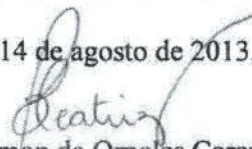 14 de agosto de 2013
Beatriz
de Ornelas